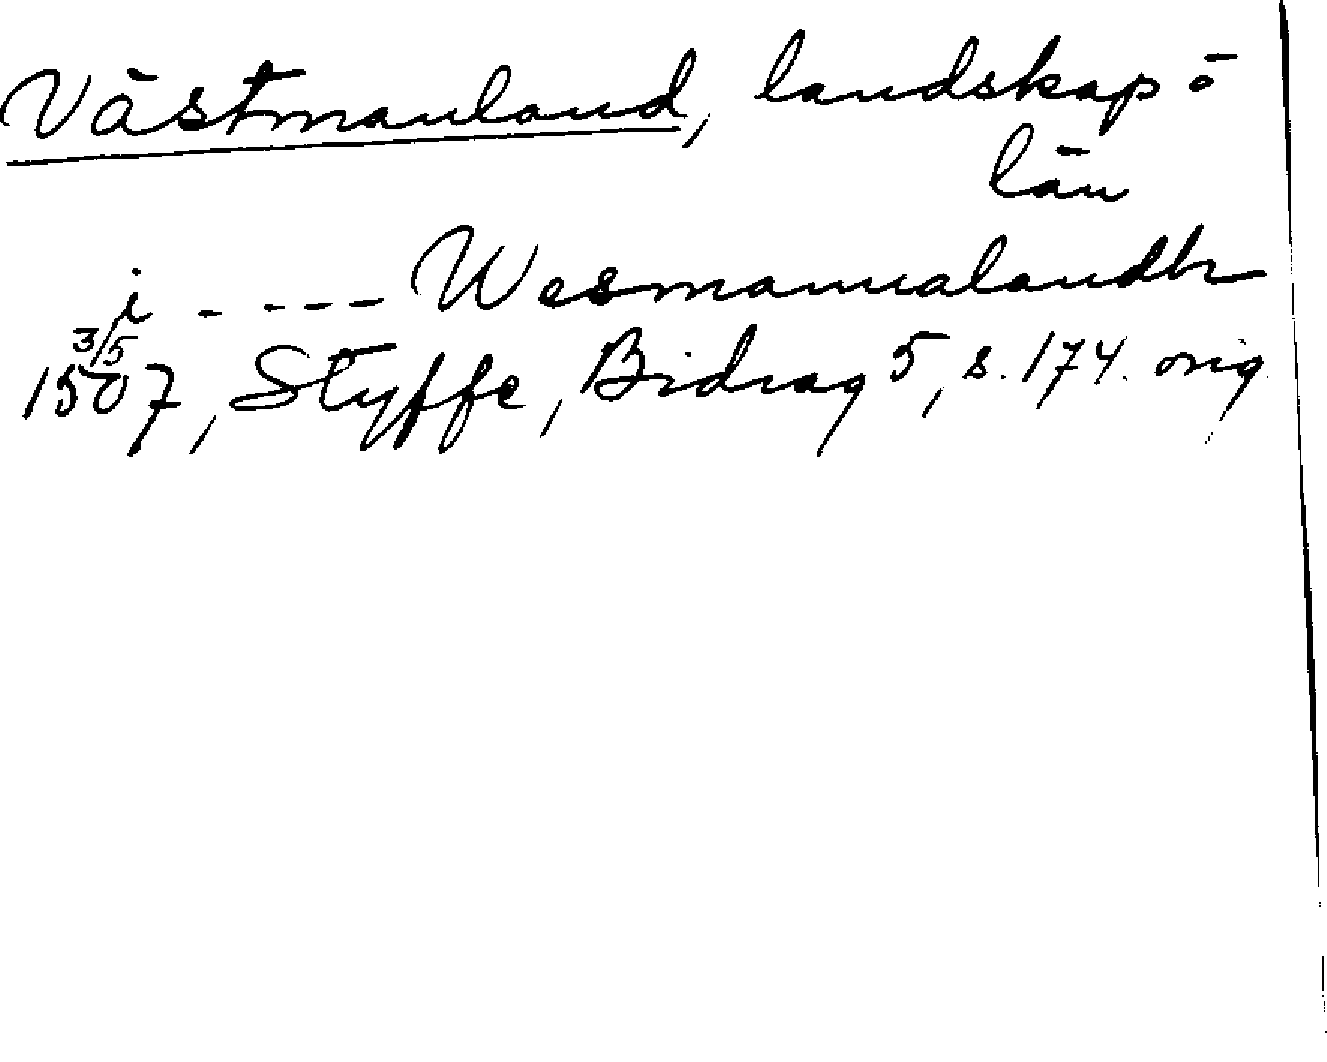 Västmanland, landskap o
län
i - - - - Wesmannalandh
3/5
1507, Styffe, Bidrag 5, s. 174. orig.